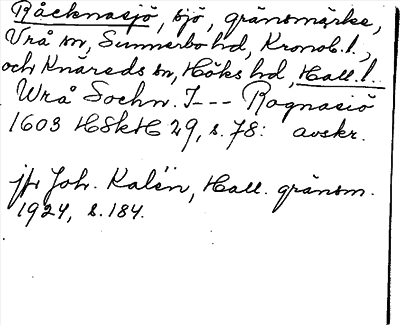 Råcknasjö, sjö, gränsmärke,
Vrå sn, Sunnerbo hd, Kronob. l.,
och Knäreds sn, Höks hd, Hall. l.
Wrå Sochn. I--- Rognasiö
1603 HSkH 29, s. 78: avskr.
jfr Joh. Kalén, Hall. gränsm.
1924, s. 184.